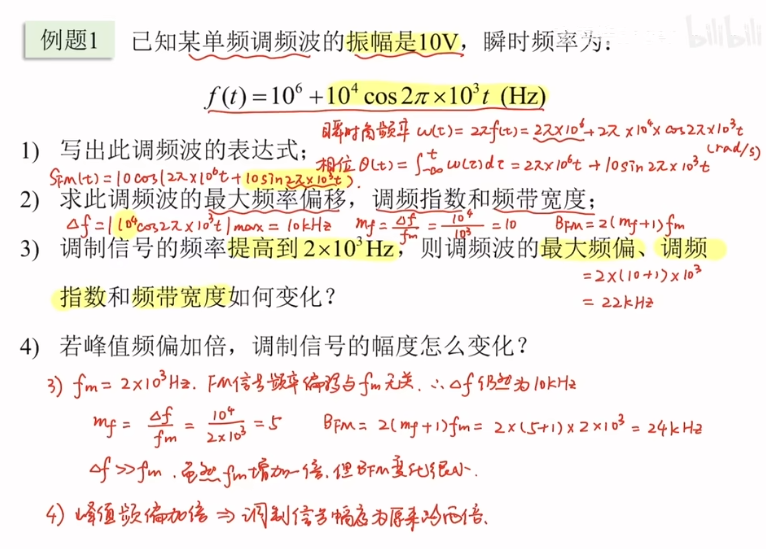 例题1 已知某单频调频波的振幅是10V，瞬时频率为： bilibili
f(t)=10⁶+10⁴cos2π×10³t (Hz)
瞬时角频率 ω(t)=2πf(t)=2π×10⁶+2π×10⁴×cos2π×10³t
(rad/s)
1) 写出此调频波的表达式； 相位θ(t)=∫_{-∞}^{t}ω(τ)dτ=2π×10⁶t+10sin2π×10³t
S_FM(t)=10cos(2π×10⁶t+10sin2π×10³t).
2) 求此调频波的最大频率偏移，调频指数和频带宽度；
Δf=|10⁴cos2π×10³t|max=10kHz mf=Δf/fm=10⁴/10³=10 B_FM=2(mf+1)fm
3) 调制信号的频率提高到2×10³Hz，则调频波的最大频偏、调频
=2×(10+1)×10³
指数和频带宽度如何变化？
=22kHz
4) 若峰值频偏加倍，调制信号的幅度怎么变化？
3) fm=2×10³Hz. FM信号频率偏移与fm无关. ∴Δf仍然为10kHz
mf=Δf/fm=10⁴/2×10³=5 B_FM=2(mf+1)fm=2×(5+1)×2×10³=24kHz
Δf≫fm. 虽然fm增加一倍，但B_FM变化很小.
4) 峰值频偏加倍⇒调制信号幅度为原来的两倍.